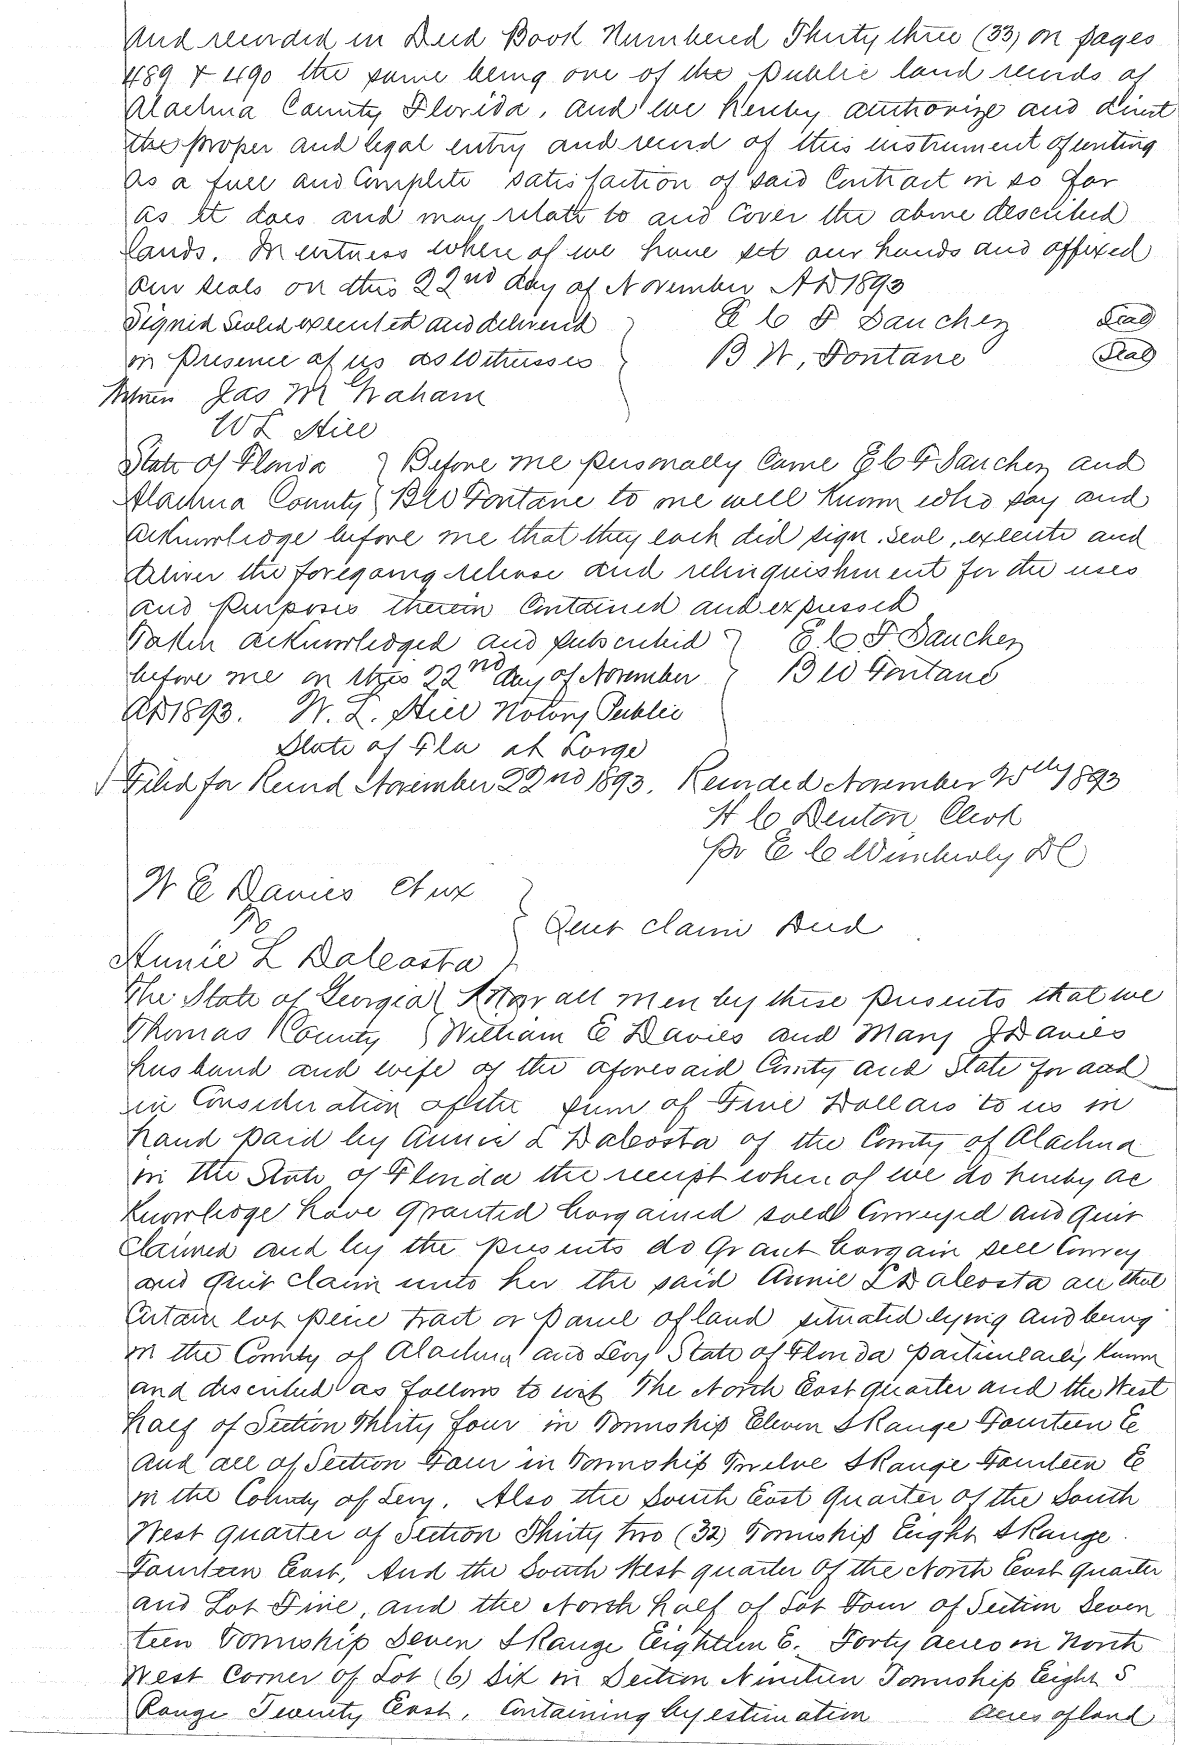 and recorded in Deed Book Numbered Thirty three (33) on pages
489 & 490 the same being one of the public land records of
Alachua County Florida, and we hereby authorize and direct
the proper and legal entry and record of this instrument of writing
as a full and Complete satisfaction of said Contract in so far
as it does and may relate to and Cover the above described
lands. In witness where of we have set our hands and affixed
our seals on this 22nd day of November AD 1893
Signed Sealed executed and delivered } E C F Sanchez Seal
in presence of us as Witnesses B W, Fontane Seal
Jas M Graham
W L Hill
State of Florida } Before me personally Came E C F Sanchez and
Alachua County } B W Fontane to me well Known who say and
acknowledge before me that they each did sign, seal, execute and
deliver the foregoing release and relinquishment for the uses
and purposes therein Contained and expressed
Taken acknowledged and subscribed } E. C F Sanchez
before me on this 22nd day of November B W Fontane
AD 1893. W. L. Hill Notary Public
State of Fla at Large
Filed for Record November 22nd 1893. Recorded November 25th 1893
H C Denton Clerk
pr E C Wimberly DC
W E Davies et ux
To } Quit Claim Deed
Annie L DaCosta
The State of Georgia } Know all men by these presents that we
Thomas County } William E Davies and Mary J Davies
husband and wife of the aforesaid County and State for and
in Consideration of the sum of Five Dollars to us in
hand paid by Annie L DaCosta of the County of Alachua
in the State of Florida the receipt where of we do hereby ac
knowledge have granted bargained sold Conveyed and Quit
Claimed and by the presents do Grant bargain sell Convey
and Quit Claim unto her the said Annie L DaCosta all that
Certain lot piece tract or parcel of land situated lying and being
in the County of Alachua and Levy State of Florida particularly Known
and described as follows to wit The North East quarter and the West
half of Section Thirty four in Township Eleven S Range Fourteen E
and all of Section Four in Township Twelve S Range Fourteen E
in the County of Levy. Also the South East quarter of the South
West quarter of Section Thirty two (32) Township Eight S Range
Fourteen East, And the South West quarter of the North East quarter
and Lot Five, and the North half of Lot Four of Section Seven
teen Township Seven S Range Eighteen E. Forty acres in North
West Corner of Lot (6) Six in Section Nineteen Township Eight S
Range Twenty East, Containing by estimation acres of land